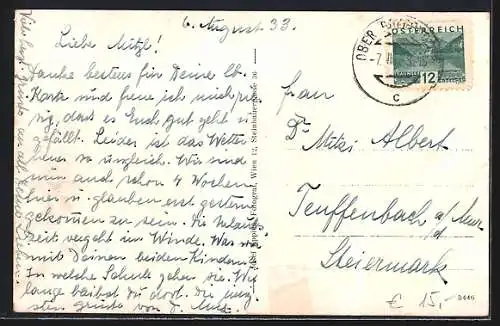 6. August 33.
Liebe Mitzl!
Danke bestens für Deine lb.
Karte und freue ich mich rie-
sig, dass es Euch gut geht u.
gefällt. Leider ist das Wetter
heuer so ungleich. Wir sind
nun auch schon 4 Wochen
hier u. glauben erst gestern
gekommen zu sein. Die Urlaub-
zeit vergeht im Winde. Was
mit Deinen beiden Kindern
In welche Schule gehen sie. Wie
lange bleibst du dort. Die
sten Grüsse von D.
Viele herzl. Grüsse an alle
Fotograf, Wien 12, Steinbauergasse 36
OBER
-7.
C
ÖSTERREICH
12
GROSCHEN
Frau
Dr Mitzi Albert
Teuffenbach a/d Mur
Steiermark
€ 15,-